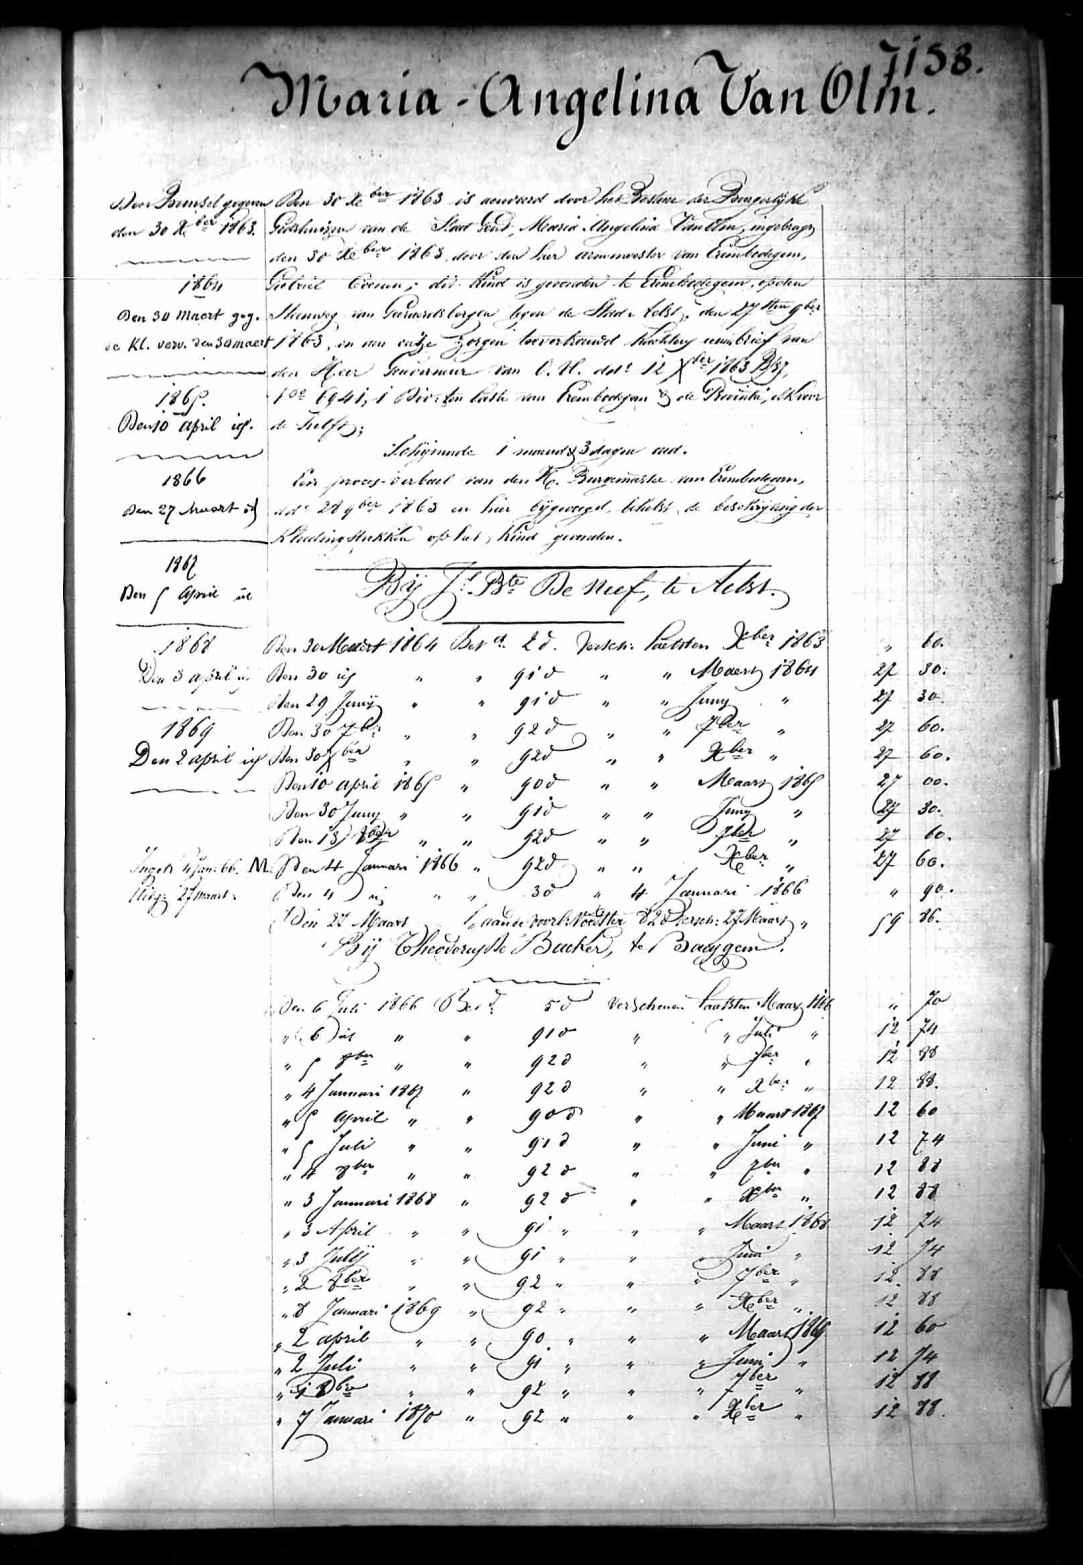 7158.
Maria-Angelina Van Olm.
Door Bunsel gegeven
den 30 Xber 1863.
1864
Den 30 Maert geg.
de Kl. verv. den 30 maert
1865.
Den 10 april id.
1866
Den 27 Maart id
1867
Den 5 April id
1868
Den 3 april id
1869
Den 2 april id
Ingek. 4 Jan. 66. M.
27 maart.
Den 30 Xber 1863 is aenveerd door het Bestuer der Burgerlijke
Godshuizen van de Stad Gent, Maria Angelina Van Olm, ingebragt
den 30 Xber 1863 door den heer armmeester van Erembodegem,
Gabriel Coenen; dit Kind is gevonden te Erembodegem, op den
Steenweg van Geeraerdsbergen tegen de Stad Aelst, den 27sten 9ber
1863, en aen onze zorgen toevertrouwd krachtens brief van
den Heer Gouverneur van O. Vl. dato 12 Xber 1863
No 6941, 1 Div: ten laste van Erembodegem & de Provintie, elk voor
de helft;
Schijnende 1 maand 3 dagen oud.
Een proces-verbael van den H. Burgemeester van Erembodegem,
ddo 28 9ber 1863 en hier bijgevoegd, behelst de beschrijving der
Kledingstukken op het Kind gevonden.
Bij Js Bte De Neef, te Aelst.
Den 30 Maert 1864 Betd 2 d. versch: laetsten Xber 1863 " 60.
Den 30 id " " 91 d " " Maert 1864 27 30.
Den 29 Junij " " 91 d " " Junij " 27 30
Den 30 7ber " " 92 d " " 7ber " 27 60.
Den 30 Xber " " 92 d " " Xber " 27 60.
Den 10 april 1865 " 90 d " " Maart 1865 27 00.
Den 30 Juny " " 91 d " " Juny " 27 30.
Den 13 8ber " " 92 d " " 7ber " 27 60.
Den 4 Januari 1866 " 92 d " " Xber " 27 60.
Den 4 id " " 30 " 4 Januari 1866 " 90.
Den 27 Maart " aan de voorl: Voedster 82 d versch: 27 Maart " 59 86.
Bij Theodorus De Backer, te Baeygem.
Den 6 Juli 1866 Betd 5 d verschenen laatsten Maart 1866 " 70
" 6 dito " " 91 d " " Juli " 12 74
" 5 8ber " " 92 d " " 7ber " 12 88
" 4 Januari 1867 " 92 d " " Xber " 12 88.
" 5 April " " 90 d " " Maart 1867 12 60
" 5 Juli " " 91 d " " Juni " 12 74
" 4 8ber " " 92 d " " 7ber " 12 88
" 3 Januari 1868 " 92 d " " Xber " 12 88
" 3 April " " 91 " " " Maart 1868 12 74
" 3 Julij " " 91 " " " Juni " 12 74
" 2 8ber " " 92 " " " 7ber " 12. 88
" 8 Januari 1869 " 92 " " " Xber " 12 88
" 2 april " " 90 " " " Maart 1869 12 60
" 2 Juli " " 91 " " " Junij " 12 74
" 1 8ber " " 92 " " " 7ber " 12 88
" 7 Januari 1870 " 92 " " " Xber " 12 88.